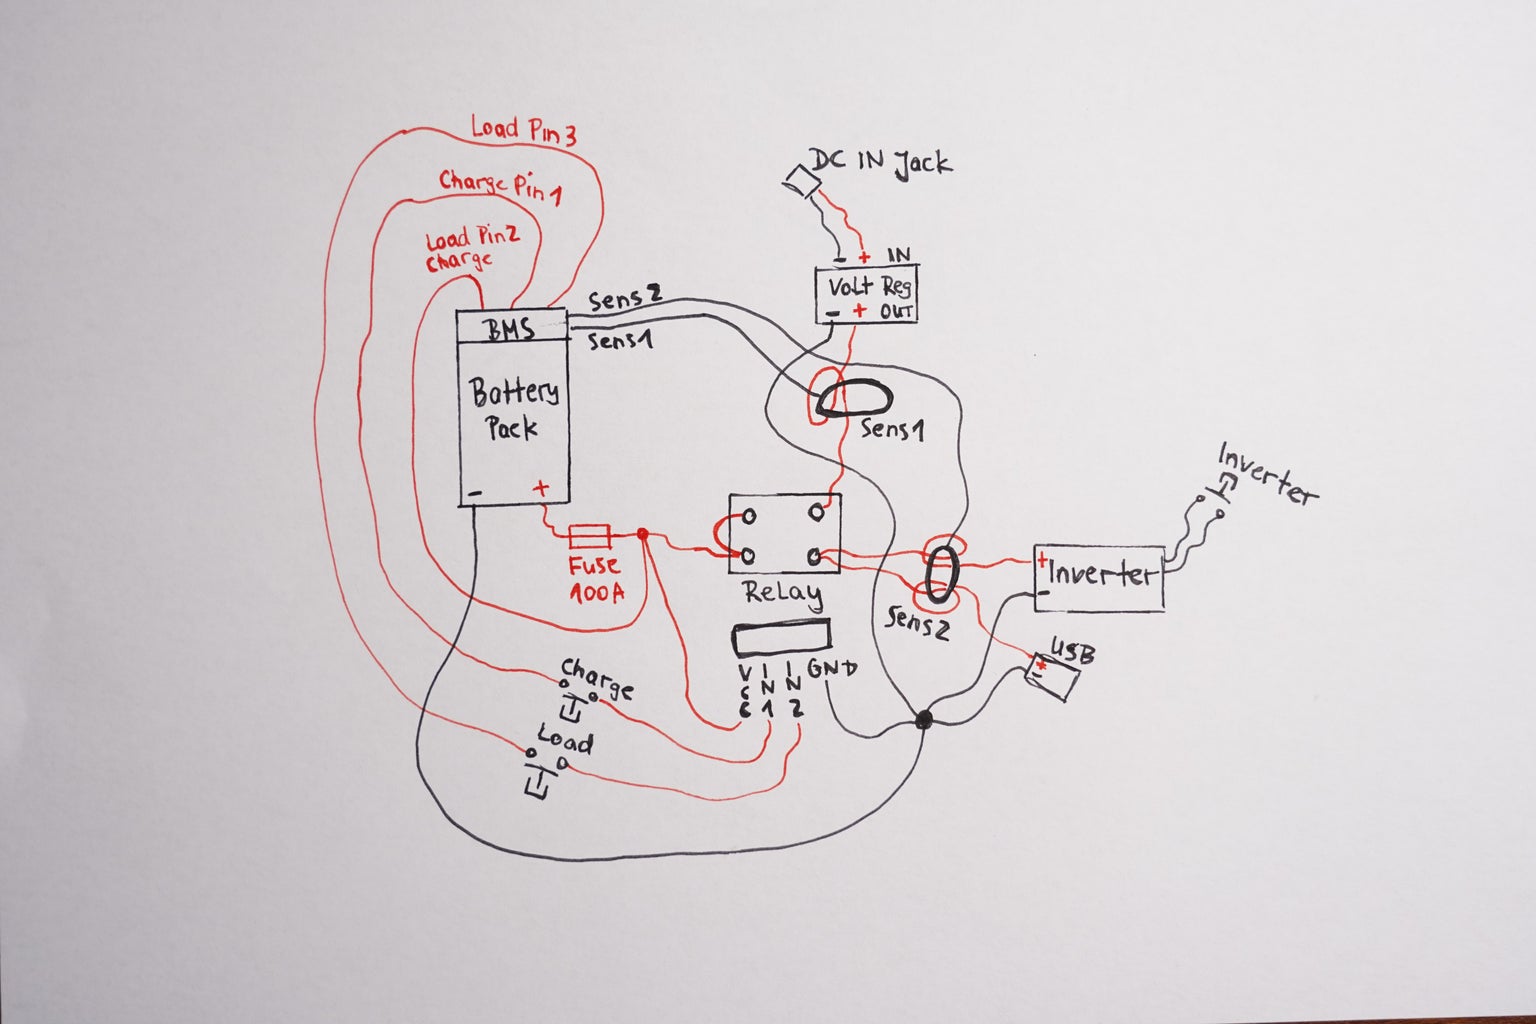 Load Pin3
Charge Pin1
Load Pin2
Charge
DC IN Jack
- + IN
Volt Reg
- + OUT
Sens2
BMS
Sens1
Battery
Pack
- +
Sens1
Inverter
Fuse
100A
Relay
+
Inverter
-
Sens2
USB
+
-
VCC IN1 IN2 GND
Charge
Load